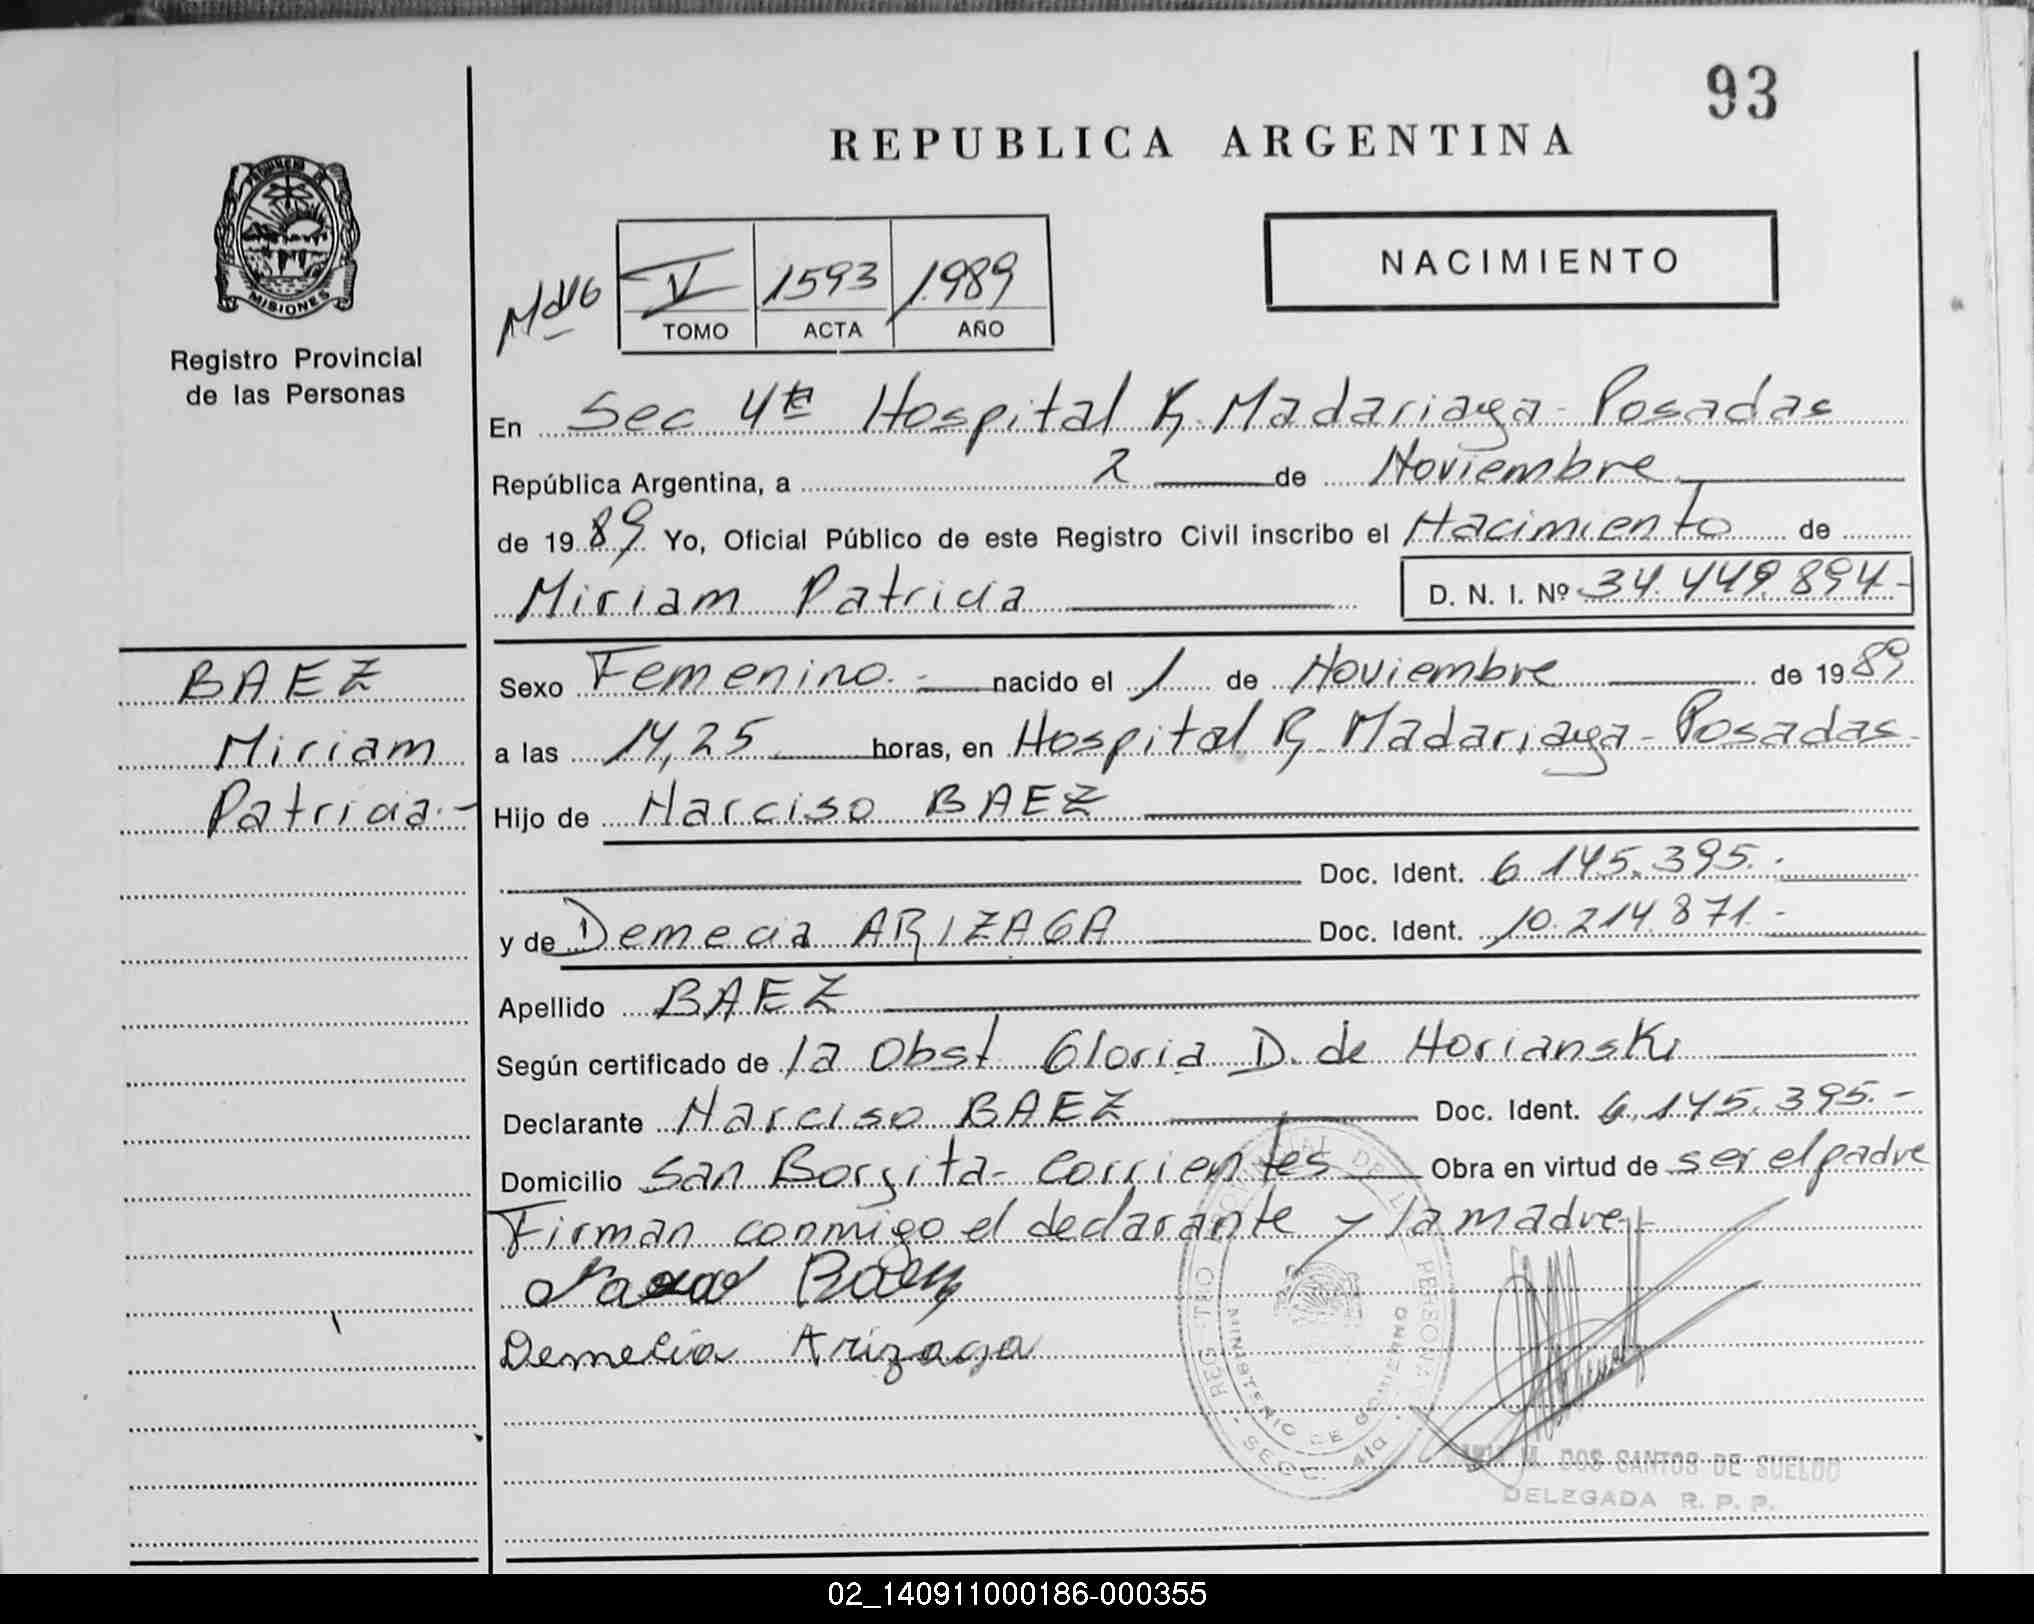 93
REPUBLICA ARGENTINA
PROVINCIA DE
MISIONES
Registro Provincial
de las Personas
NACIMIENTO
V 1593 1989
TOMO ACTA AÑO
En Sec 4ta Hospital R. Madariaga - Posadas
República Argentina, a 2 de Noviembre
de 1989 Yo, Oficial Público de este Registro Civil inscribo el Nacimiento de
Miriam Patricia D. N. I. Nº 34.449.894.-
BAEZ
Miriam
Patricia.-
Sexo Femenino.- nacido el 1 de Noviembre de 1989
a las 14,25 horas, en Hospital R. Madariaga - Posadas-
Hijo de Narciso BAEZ
Doc. Ident. 6.145.395.-
y de Demecia ARIZAGA Doc. Ident. 10.214.871.-
Apellido BAEZ
Según certificado de la Obst Gloria D. de Horianski
Declarante Narciso BAEZ Doc. Ident. 6.145.395.-
Domicilio San Borgita- Corrientes Obra en virtud de ser el padre
Firman conmigo el declarante y la madre
Baez
Demecia Arizaga
REGISTRO PROVINCIAL DE LAS PERSONAS
MINISTERIO DE GOBIERNO
SECC. 4ta
M. DOS SANTOS DE SUELDO
DELEGADA R. P. P.
02_140911000186-000355